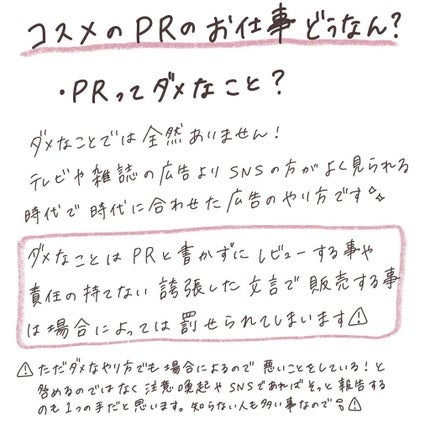 コスメのPRのお仕事どうなん?
・PRってダメなこと?
ダメなことでは全然ありません!
テレビや雑誌の広告よりSNSの方がよく見られる
時代で時代に合わせた広告のやり方です✨
ダメなことはPRと書かずにレビューする事や
責任の持てない誇張した文言で販売する事
は場合によっては罰せられてしまいます⚠
⚠ただダメなやり方でも場合によるので悪いことをしている!と
咎めるのではなく注意喚起やSNSであればそっと報告する
のも1つの手だと思います。知らない人も多い事なので⚠